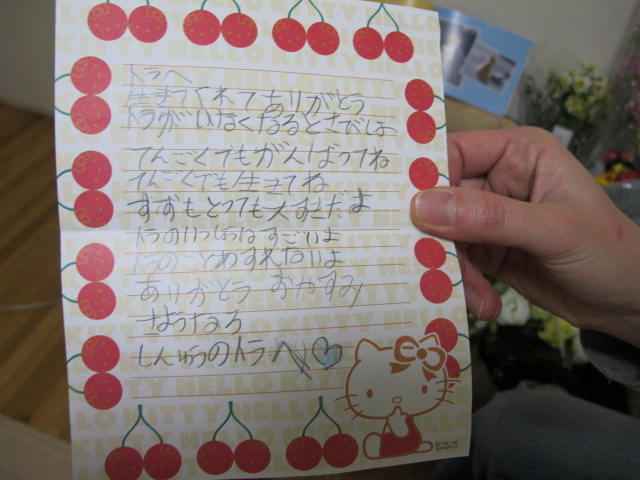 トラへ
生まてくれてありがとう
トラがいなくなるとさびしよ
てんごくでもがんばってね
てんごくでも生きてね
すずもとっても大すきだよ
トラのいっしょうはすごいよ
トラのことわすれないよ
ありがとう おやすみ
さようなら
しんゆうのトラへ
HELLO KITTY